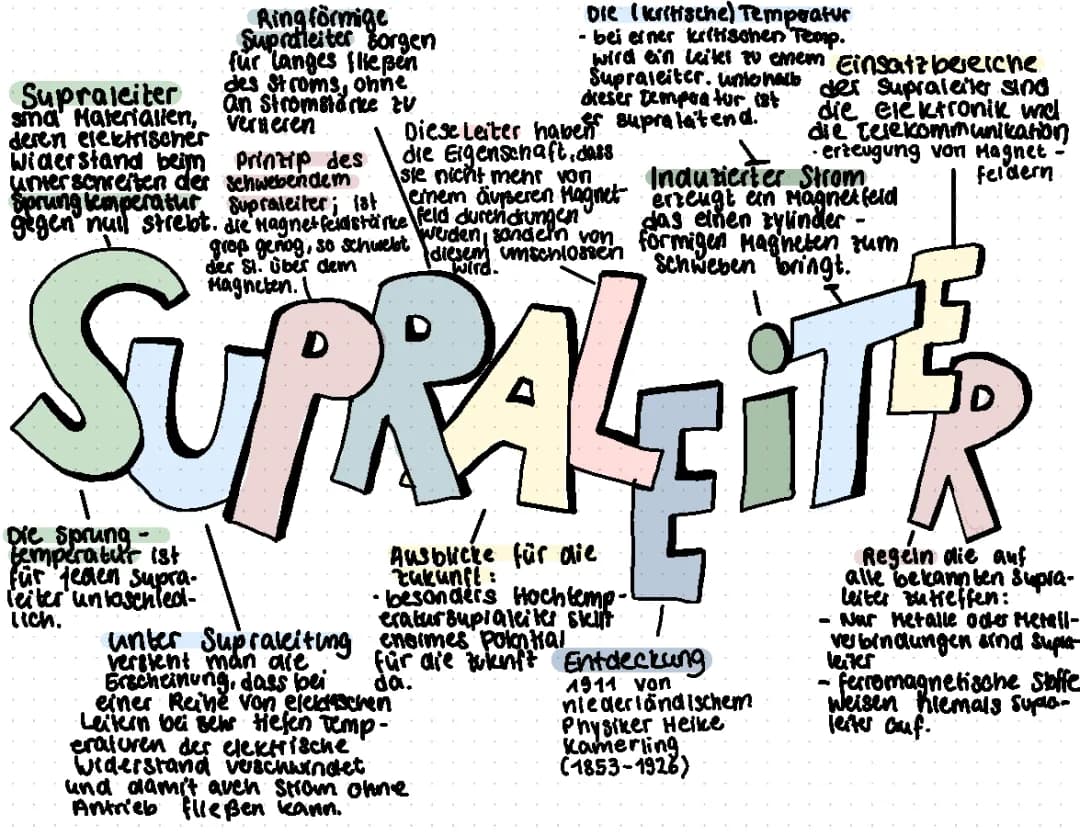 Supraleiter
sind Materialien,
deren elektrischer
Widerstand beim
unterschreiten der
Sprungtemperatur
gegen null strebt.
Ringförmige
Supraleiter sorgen
für langes fließen
des Stroms, ohne
an Stromstärke zu
verlieren
Prinzip des
schwebendem
Supraleiter; ist
die Magnetfeldstärke
groß genog, so schwebt
der Sl. über dem
Magneten.
Diese Leiter haben
die Eigenschaft, dass
sie nicht mehr von
einem äußeren Magnet-
feld durchdrungen
werden, sondern von
diesem umschlossen
wird.
Die (kritische) Temperatur
- bei einer kritischen Temp.
wird ein Leiter zu einem
Supraleiter. unterhalb
dieser Temperatur ist
er supraleitend.
Induzierter Strom
erzeugt ein Magnetfeld
das einen zylinder-
förmigen Magneten zum
Schweben bringt.
Einsatzbereiche
der Supraleiter sind
die Elektronik und
die Telekommunikation
· erzeugung von Magnet-
feldern
SUPRALEiTER
Die Sprung-
temperatur ist
für jeden Supra-
leiter unterschied-
lich.
unter Supraleitung
versteht man die
Erscheinung, dass bei
einer Reihe von elektrischen
Leitern bei sehr tiefen Temp-
eraturen der elektrische
Widerstand verschwindet
und damit auch Strom ohne
Antrieb fließen kann.
Ausblicke für die
zukunft:
· besonders Hochtemp-
eratursupraleiter stellt
enormes Potential
für die zukunft
da.
Entdeckung
1911 von
niederländischem
Physiker Heike
Kamerling
(1853-1926)
Regeln die auf
alle bekannten Supra-
leiter zutreffen:
- Nur Metalle oder Metall-
verbindungen sind Supra-
leiter
- ferromagnetische Stoffe
weisen niemals Supra-
leiter auf.